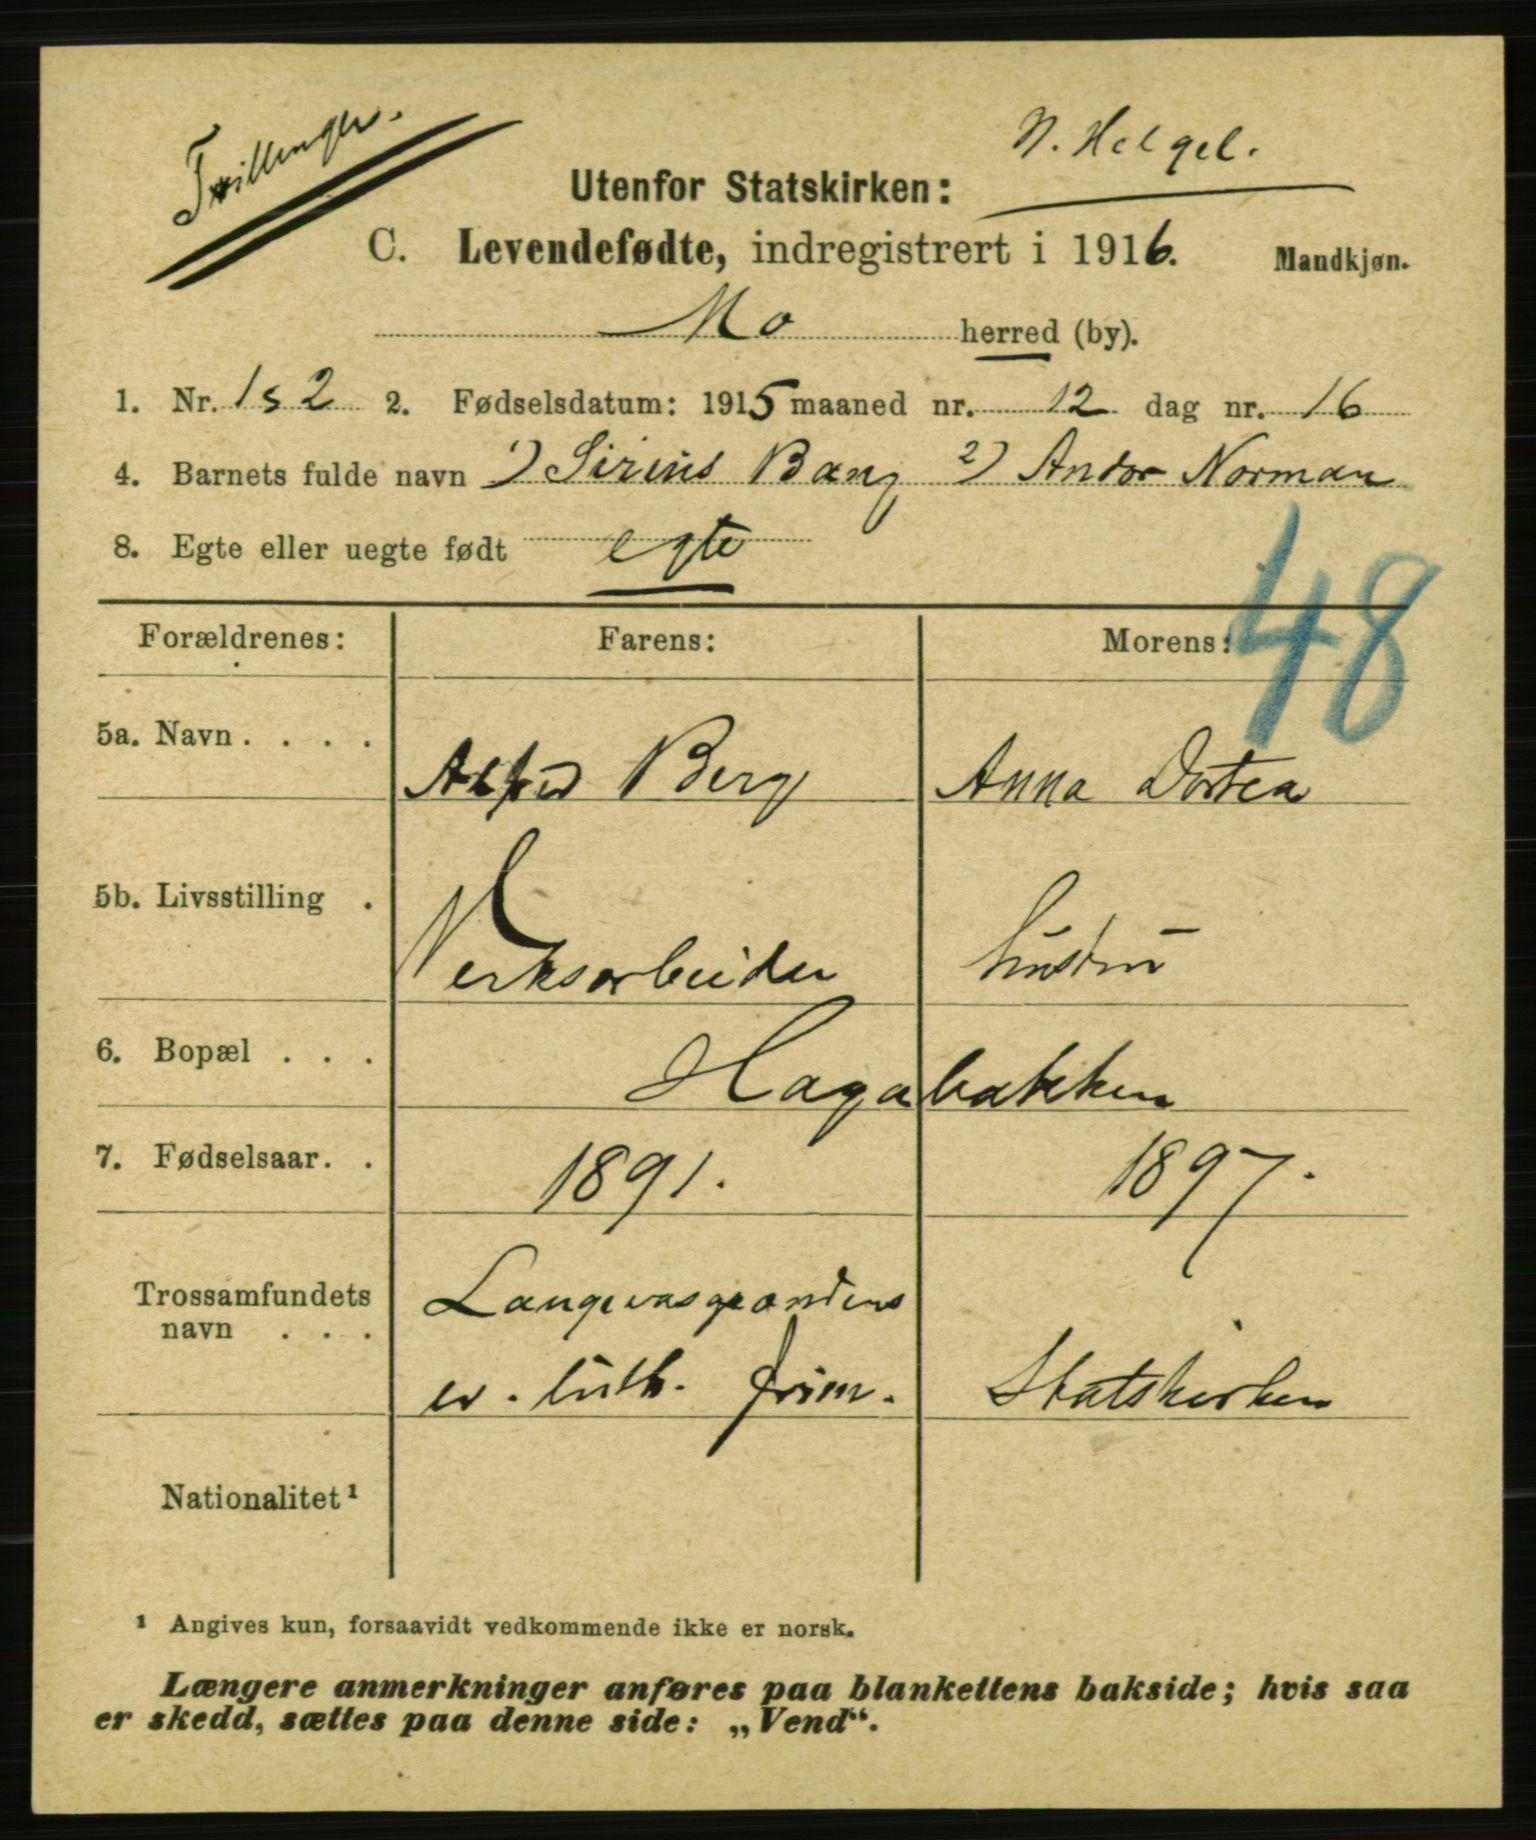 Tvillinger.
N. Helgel.
Utenfor Statskirken:
C. Levendefødte, indregistrert i 1916. Mandkjøn.
Mo herred (by).
1. Nr. 1 s 2 2. Fødselsdatum: 1915 maaned nr. 12 dag nr. 16
4. Barnets fulde navn 1) Sirius Bang 2) Andor Norman
8. Egte eller uegte født egte
48
Forældrenes: Farens: Morens:
5a. Navn . . . . Alfred Berg Anna Dortea
5b. Livsstilling . Verksarbeider hustru
6. Bopæl . . . Hagabakken
7. Fødselsaar. . 1891. 1897.
Trossamfundets Langvasgrandens
navn . . . ev. luth. frim. Statskirken
Nationalitet¹
¹ Angives kun, forsaavidt vedkommende ikke er norsk.
Længere anmerkninger anføres paa blankettens bakside; hvis saa
er skedd, sættes paa denne side: „Vend“.